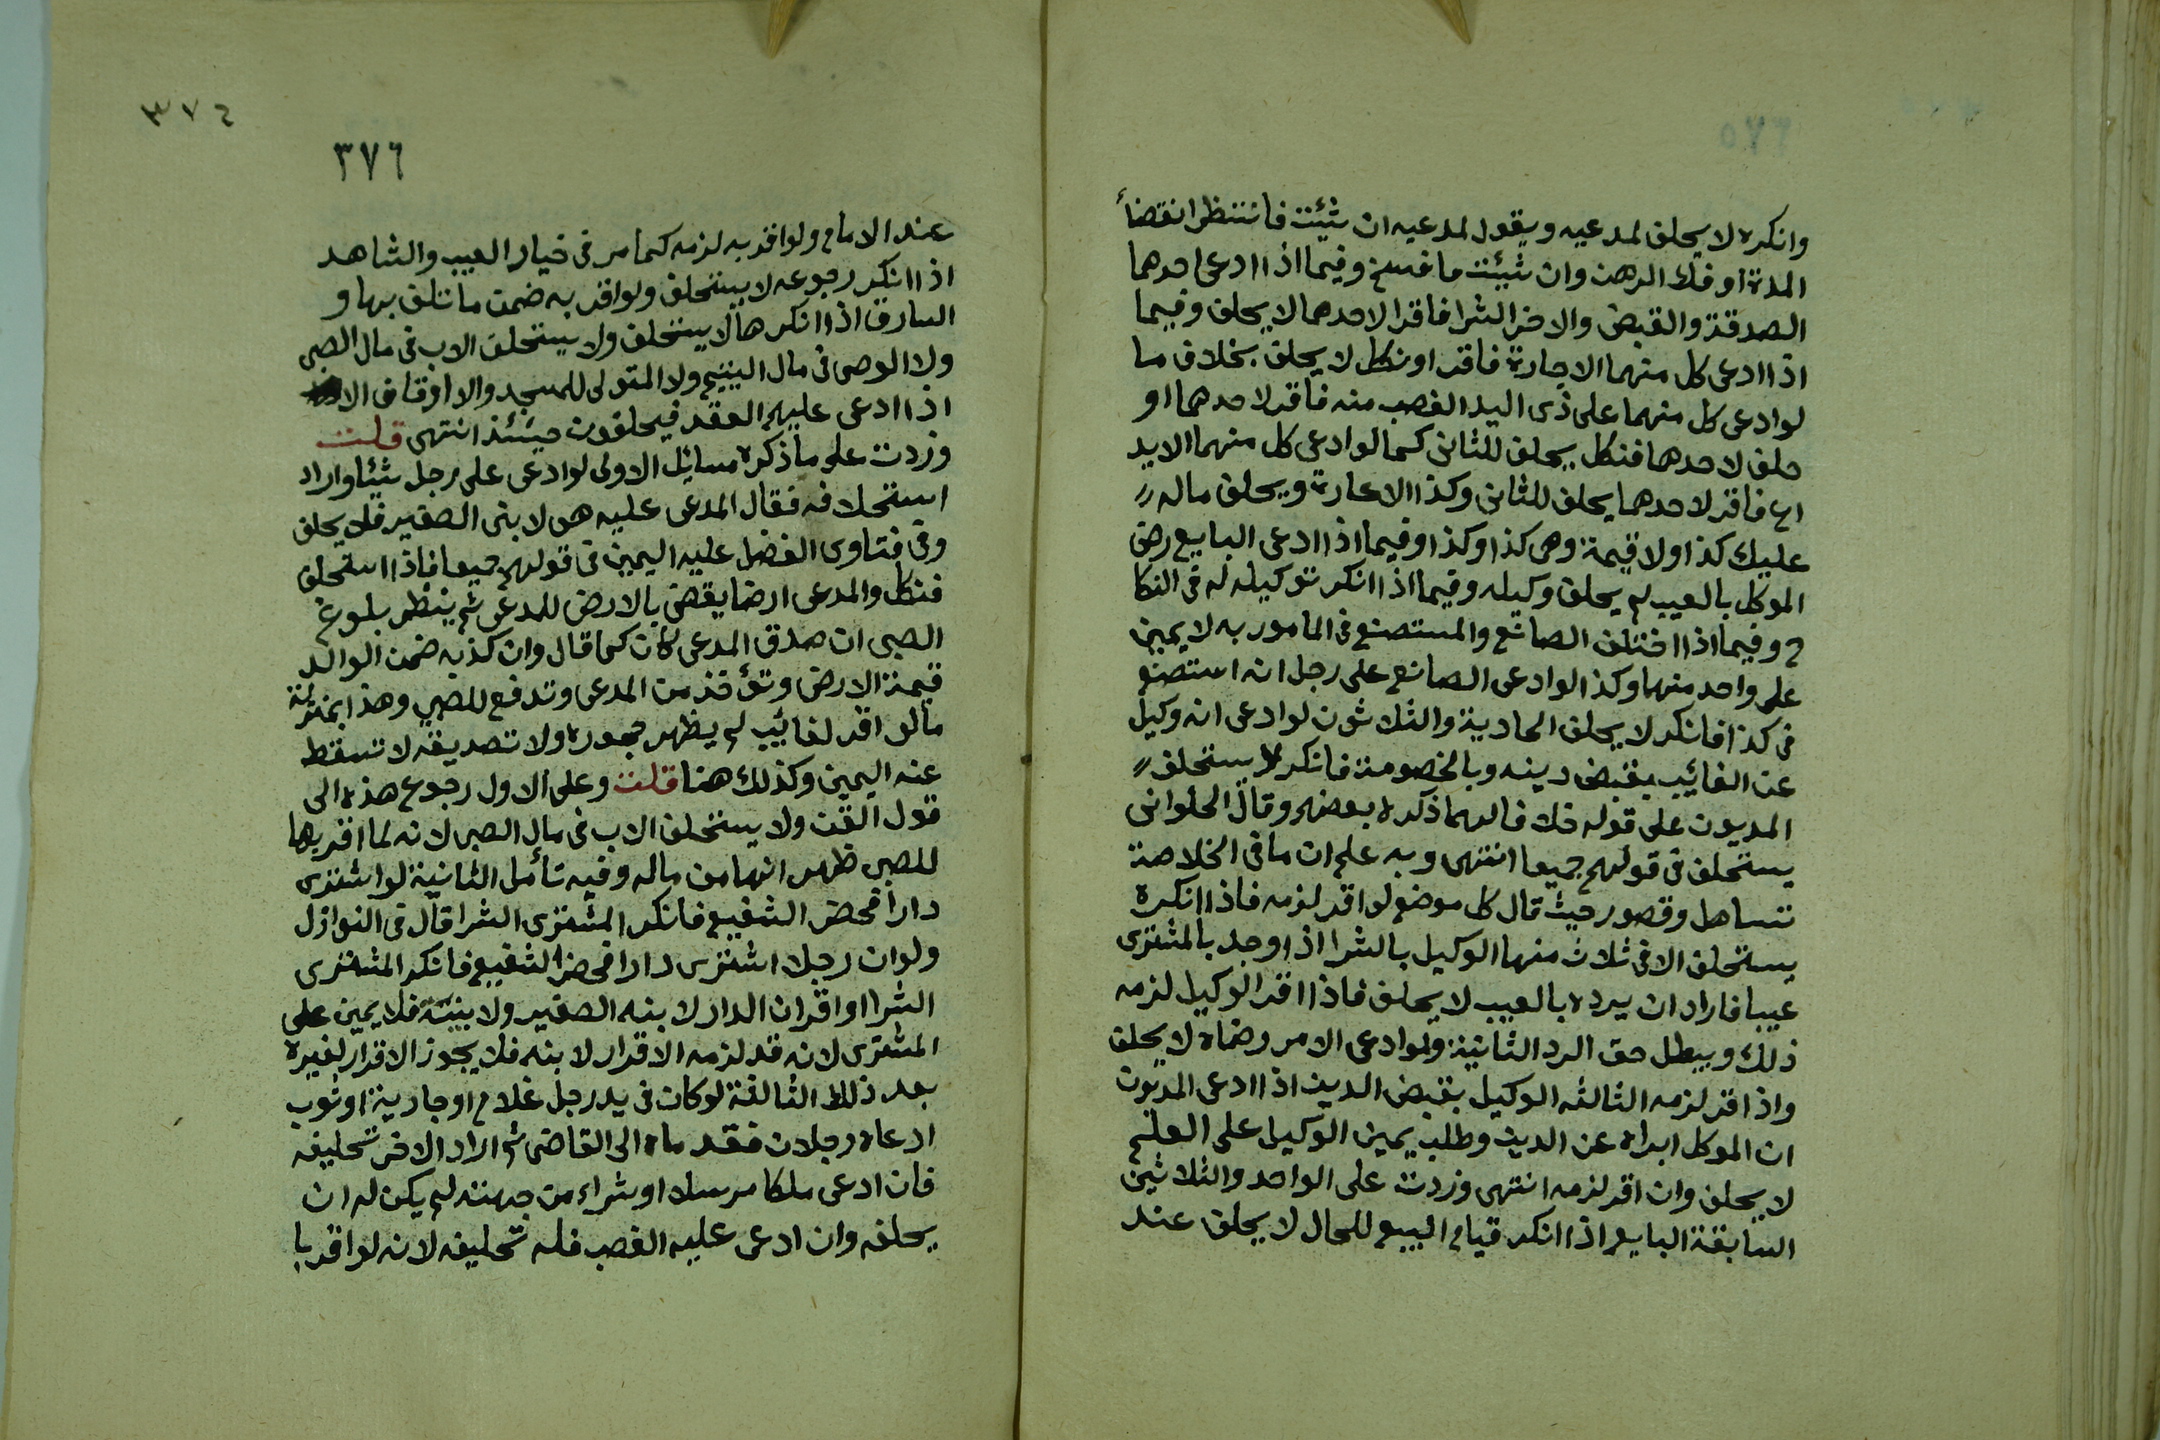 وانكره لا يحلق لمدعيه ويقول لمدعيه ان شئت فانتظر انقضاء
المدة او فك الرهن وان شئت ما فسخ وفيما اذا ادعى احدهما
الصدقة والقبض والاخر الشرا فاقر لاحدهما لا يحلف وفيما
اذا ادعى كل منهما الاجارة فاقر او نكل لا يحلف بخلاف ما
لو ادعى كل منهما على ذى اليد الغصب منه فاقر لاحدهما او
حلف لاحدهما فنكل يحلف للثانى كما لو ادعى كل منهما الايد
اع فاقر لاحدهما يحلف للثانى وكذا الاعارة ويحلف ماله
عليك كذا ولا قيمة وهى كذا وكذا وفيما اذا ادعى البايع رضى
الموكل بالعيب لم يحلف وكيله وفيما اذا انكر توكيله له فى النكا
ح وفيما اذا اختلف الصانع والمستصنع فى المامور به لا يمين
على واحد منهما وكذا لو ادعى الصانع على رجل انه استصنع
فى كذا فانكر لا يحلف الحادية والثلاثون لو ادعى انه وكيل
عن الغائب بقبض دينه وبالخصومة فانكر لا يستحلف
المديون على قوله خلافا لهما ذكره بعضهم وقال الحلوانى
يستحلف فى قولهم جميعا انتهى وبه علم ان ما فى الخلاصة
تساهل وقصور حيث قال كل موضع لو اقر لزمه فاذا انكره
يستحلف الا فى ثلاث منها الوكيل بالشرا اذا وجد بالمشترى
عيبا فاراد ان يرده بالعيب لا يحلف فاذا اقر الوكيل لزمه
ذلك ويبطل حق الرد الثانية ولو ادعى الامر رضاه لا يحلف
واذا اقر لزمه الثالثه الوكيل بقبض الدين اذا ادعى المديون
ان الموكل ابراه عن الدين وطلب يمين الوكيل على العلم
لا يحلف وان اقر لزمه انتهى وزدت على الواحد والثلاثين
السابقة البايع اذا انكر قيام البيع للحال لا يحلف عند
٣٧٤
٣٧٦
عند الامام ولو اقر به لزمه كما مر فى خيار العيب والشاهد
اذا انكر رجوعه لا يستحلف ولو اقر به ضمن ما تلف بها و
السارق اذا انكرها لا يستحلف ولا يستحلف الاب فى مال الصبى
ولا الوصى فى مال اليتيم ولا المتولى للمسجد والاوقاف الا
اذا ادعى عليهم العقد فيحلفون حينئذ انتهى قلت
وزدت على ما ذكره مسايل الاولى لو ادعى على رجل شيئا واراد
استحلافه فقال المدعى عليه هو لابنى الصغير فلا يحلف
وفى فتاوى الفضل عليه اليمين فى قولهم جميعا فاذا استحلف
فنكل والمدعى ارضا يقضى بالارض للمدعى ثم ينظر بلوغ
الصبى ان صدق المدعى كان كما قال وان كذبه ضمن الوالد
قيمة الارض وتؤخذ من المدعى وتدفع للصبى وهذا بمنزلة
مالو اقر لغائب لم يظهر جحوده ولا تصديقه لا تسقط
عنه اليمين وكذلك هنا قلت وعلى الاول رجوع هذه الى
قول القن ولا يستحلف الاب فى مال الصبى لانه لما اقر بها
للصبى ظهر انها من ماله وفيه تأمل الثانية لو اشترى
دارا فحضر الشفيع فانكر المشترى الشرا قال فى النوازل
ولو ان رجلا اشترى دارا فحضر الشفيع فانكر المشترى
الشرا او اقر ان الدار لابنه الصغير ولا بينة فلا يمين على
المشترى لانه قد لزمه الاقرار لابنه فلا يجوز الاقرار لغيره
بعد ذلك الثالثة لو كان فى يد رجل غلام او جارية او ثوب
ادعاه رجلان فقدماه الى القاضى ثم اراد الاخر تحليفه
فان ادعى ملكا مرسلا او شراء من جهته لم يكن له ان
يحلفه وان ادعى عليه الغصب فله تحليفه لانه لو اقر با